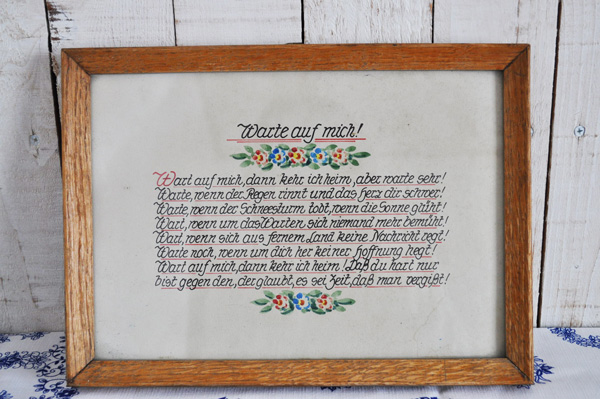 Warte auf mich!
Wart auf mich, dann kehr ich heim, aber warte sehr!
Warte, wenn der Regen rinnt und das Herz dir schwer!
Warte, wenn der Schneesturm tobt, wenn die Sonne glüht!
Wart, wenn um das Warten sich niemand mehr bemüht!
Wart, wenn sich aus fernem Land keine Nachricht regt!
Warte noch, wenn um dich her keiner Hoffnung hegt!
Wart auf mich, dann kehr ich heim! Daß du hart nur
bist gegen den, der glaubt, es sei Zeit, daß man vergißt!